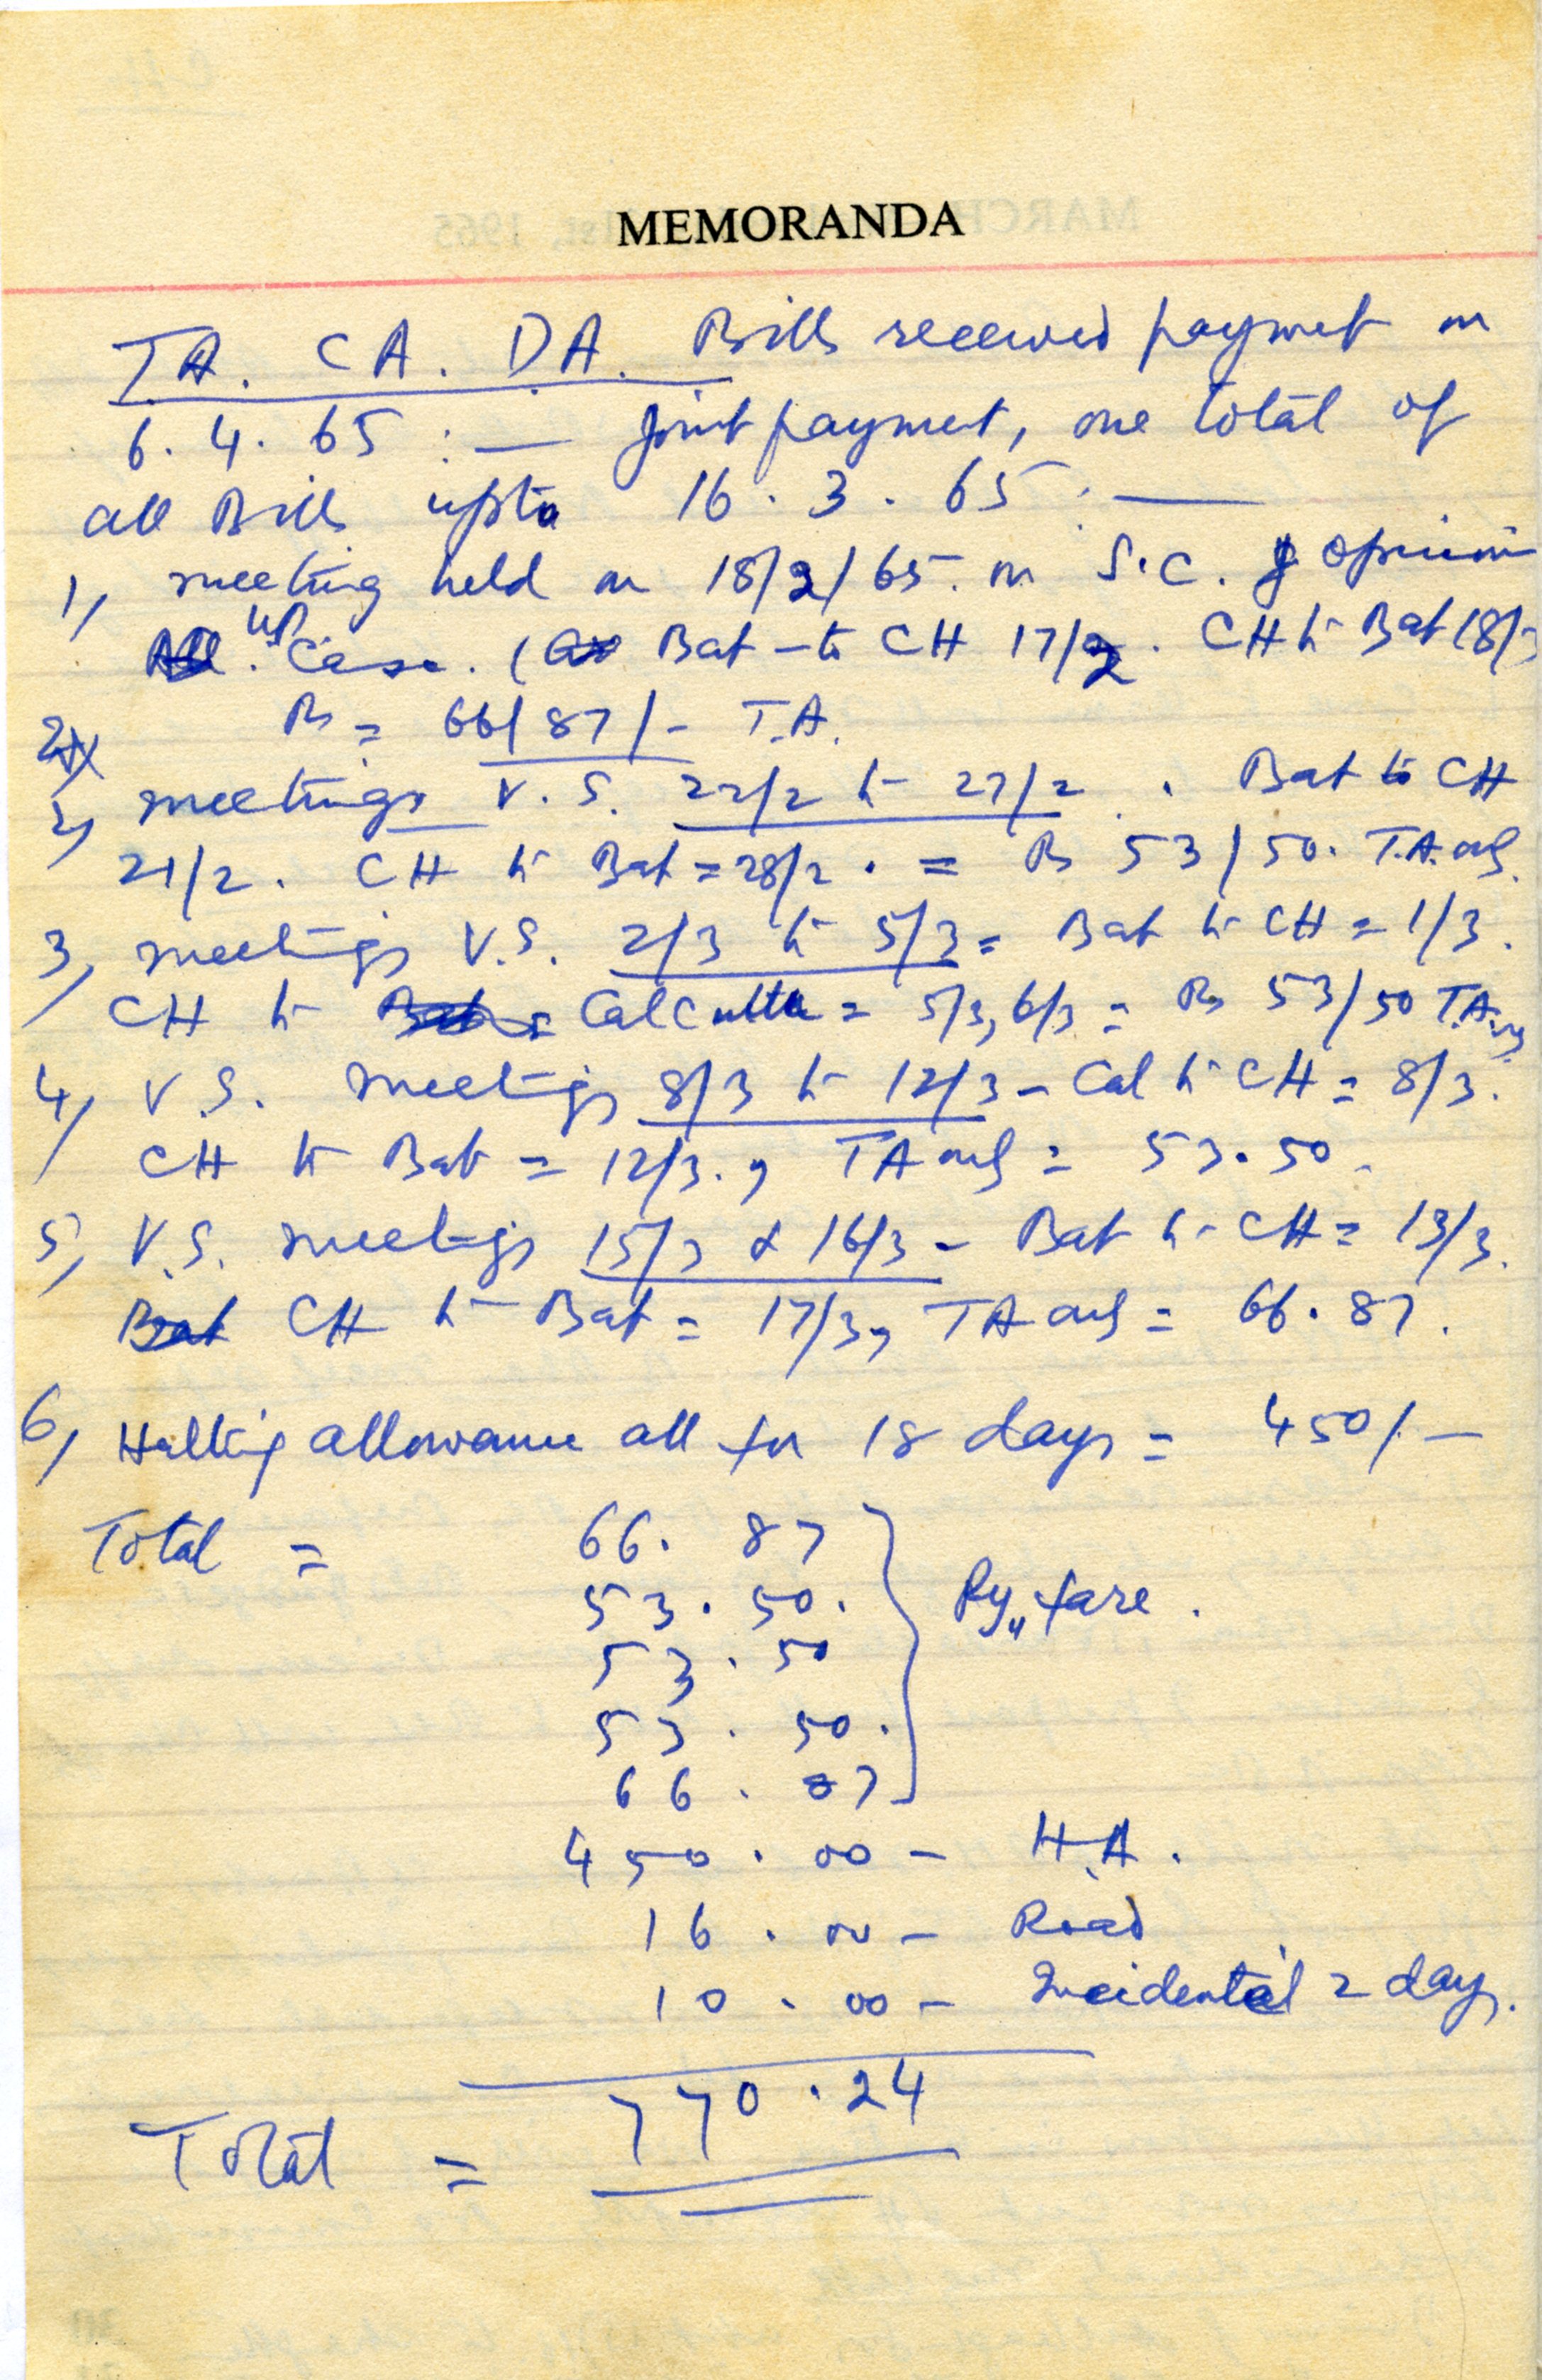 MEMORANDA
TA. CA. DA. Bills received payment on
6.4.65 :— Joint payment, one total of
all Bills upto 16.3.65 :—
1, meeting held on 18/2/65. on S.C. opinion
UP Case. ( Bat - to CH 17/2. CH to Bat 18/
Rs = 66/87/- T.A.
2, meetings V.S. 22/2 to 27/2. Bat to CH
21/2. CH to Bat = 28/2. = Rs 53/50. T.A. only.
3, meetings V.S. 2/3 to 5/3 = Bat to CH = 1/3.
CH to Calcutta = 5/3, 6/3 = Rs 53/50 T.A. only
4, V.S. meetings 8/3 to 12/3 - Cal to CH = 8/3.
CH to Bat = 12/3., TA only = 53.50.
5, V.S. meetings 15/3 & 16/3 - Bat to CH = 13/3.
CH to Bat = 17/3, TA only = 66.87.
6, Halting allowance all for 18 days = 450/-
Total = 66.87
53.50. Ry, fare.
53.50
53.50.
66.87
450.00 - H.A.
16.00 - Road
10.00 - Incidental 2 days.
Total = 770.24